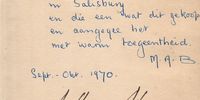 in Salisbury
en die een wat dit gekoop
en aangegee het
met warm toegeentheid.
M.A.B
Sept. - Okt. 1970.